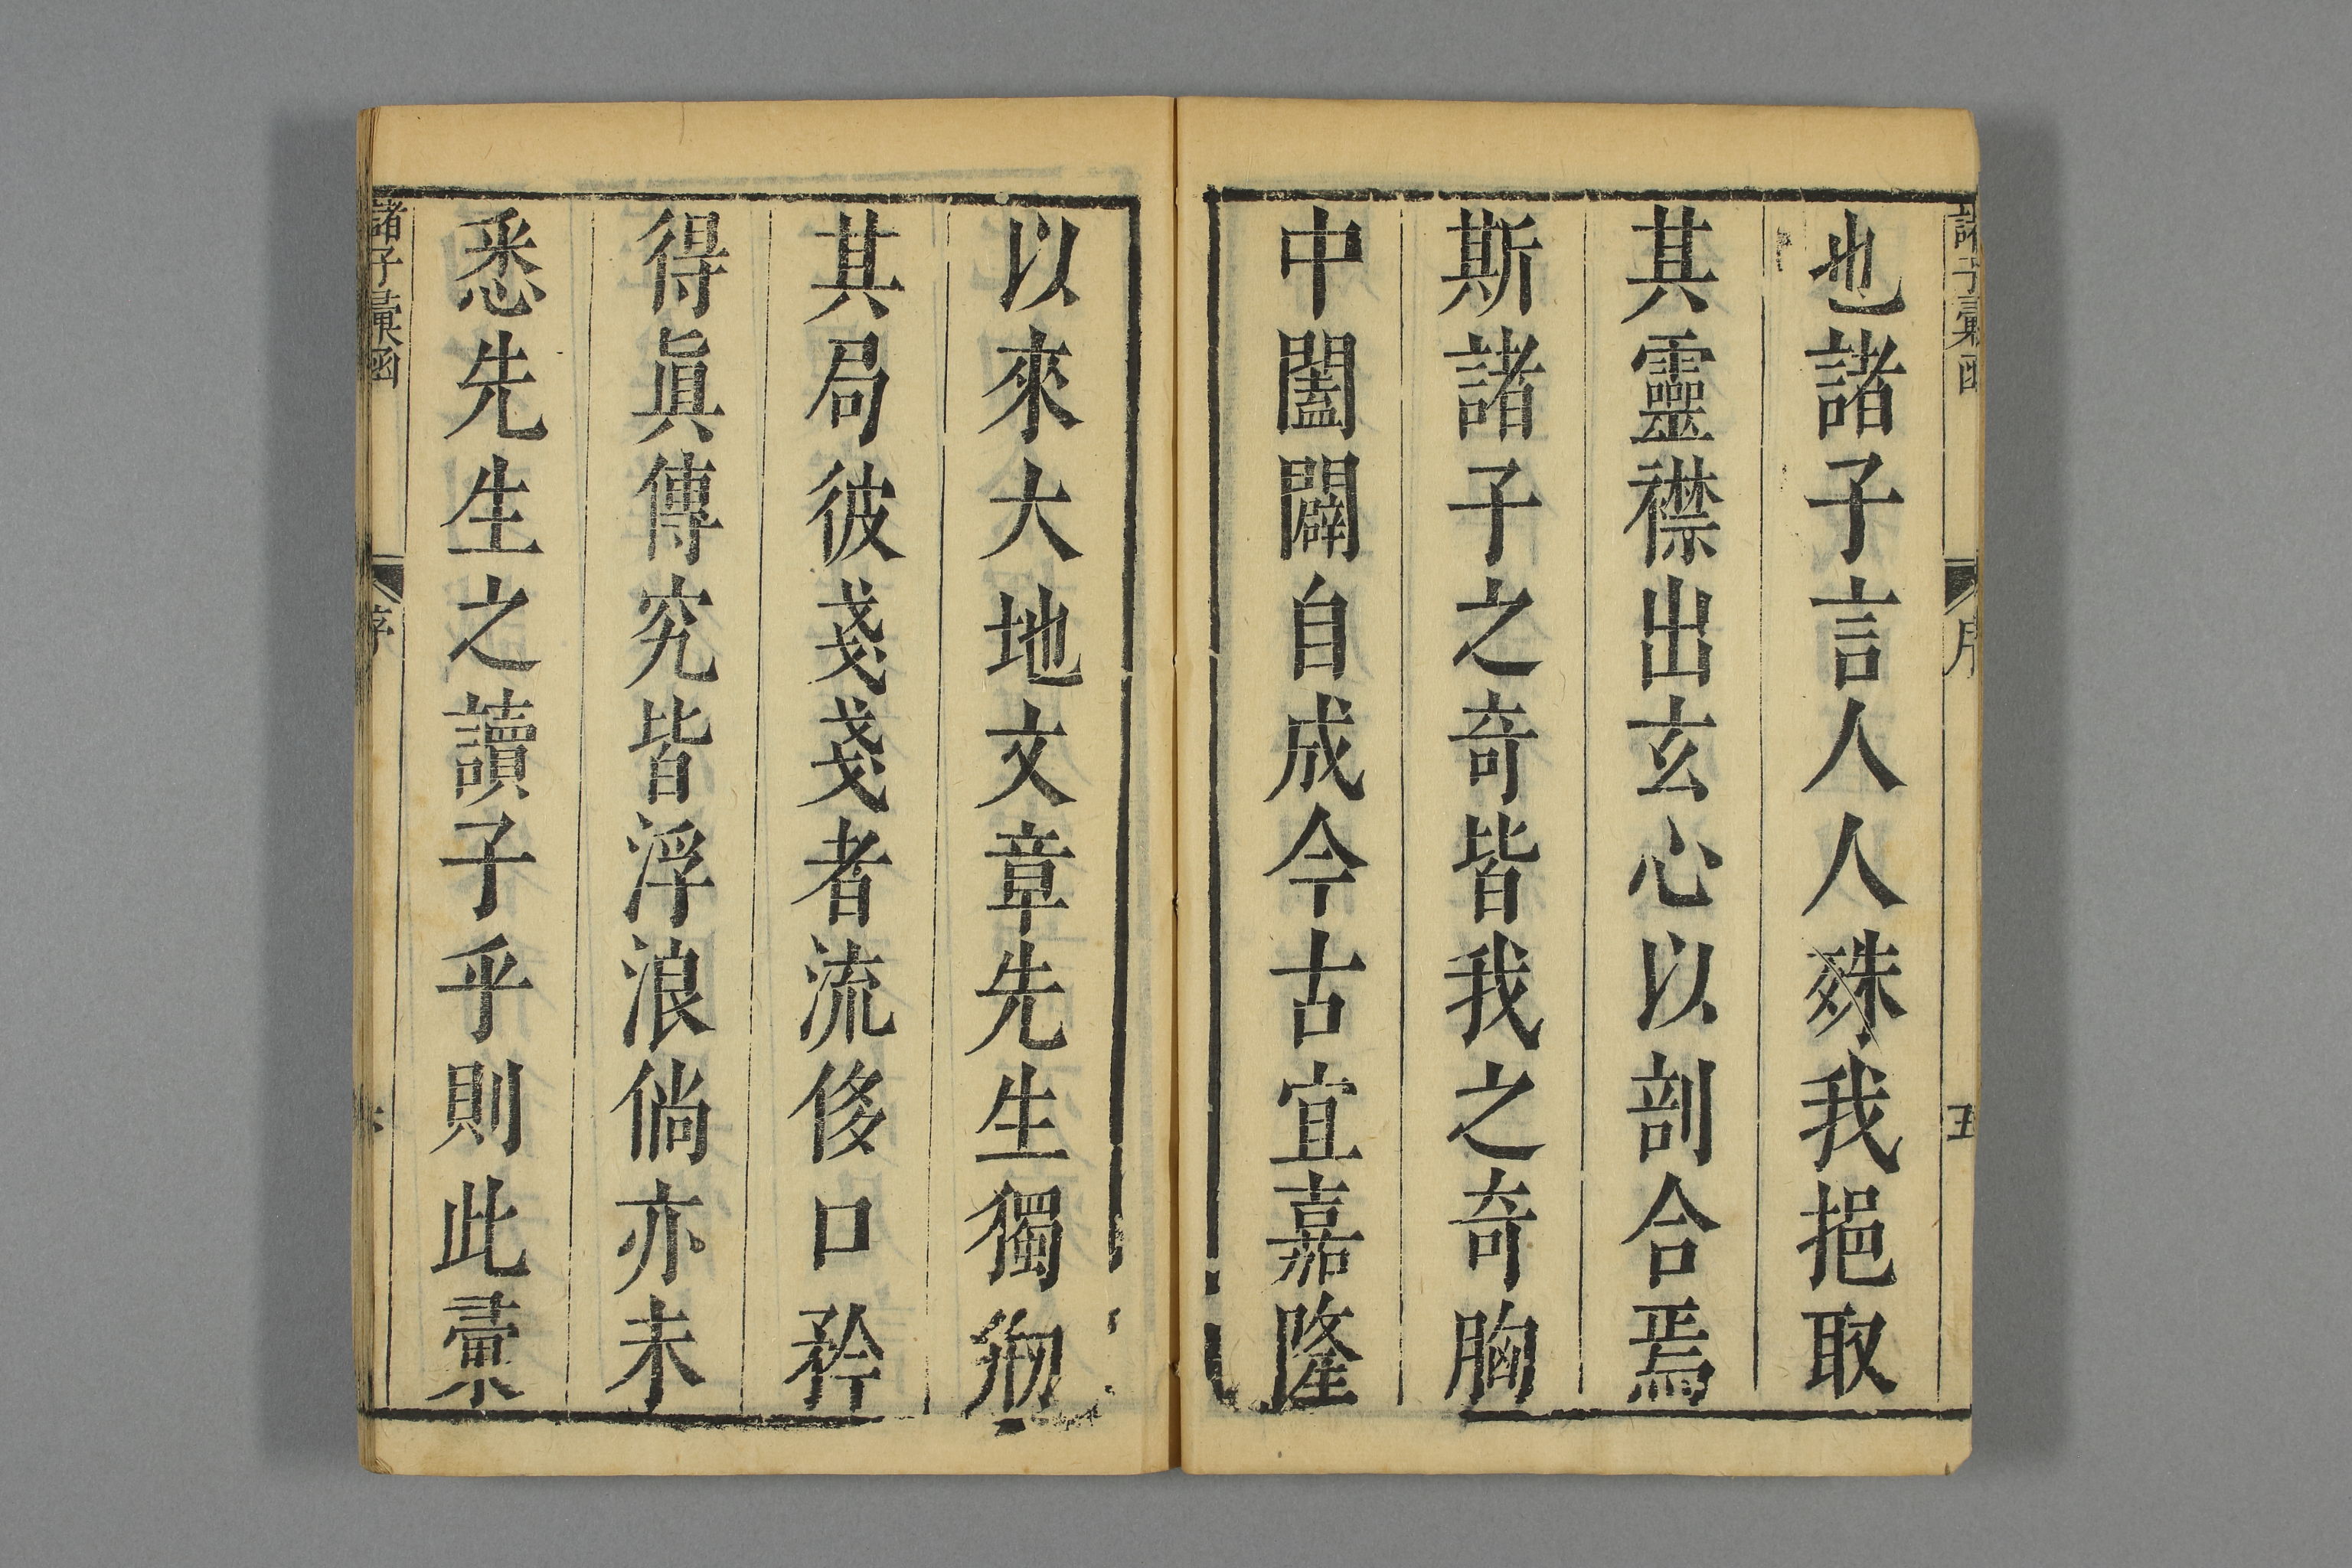 諸子彙函 序 五
也諸子言人人殊我挹取
其靈襟出玄心以剖合焉
斯諸子之奇皆我之奇胸
中闔闢自成今古宜嘉隆
以來大地文章先生獨剏
其局彼戔戔者流侈口矜
得眞傳究皆浮浪倘亦未
悉先生之讀子乎則此彙
諸子彙函 序